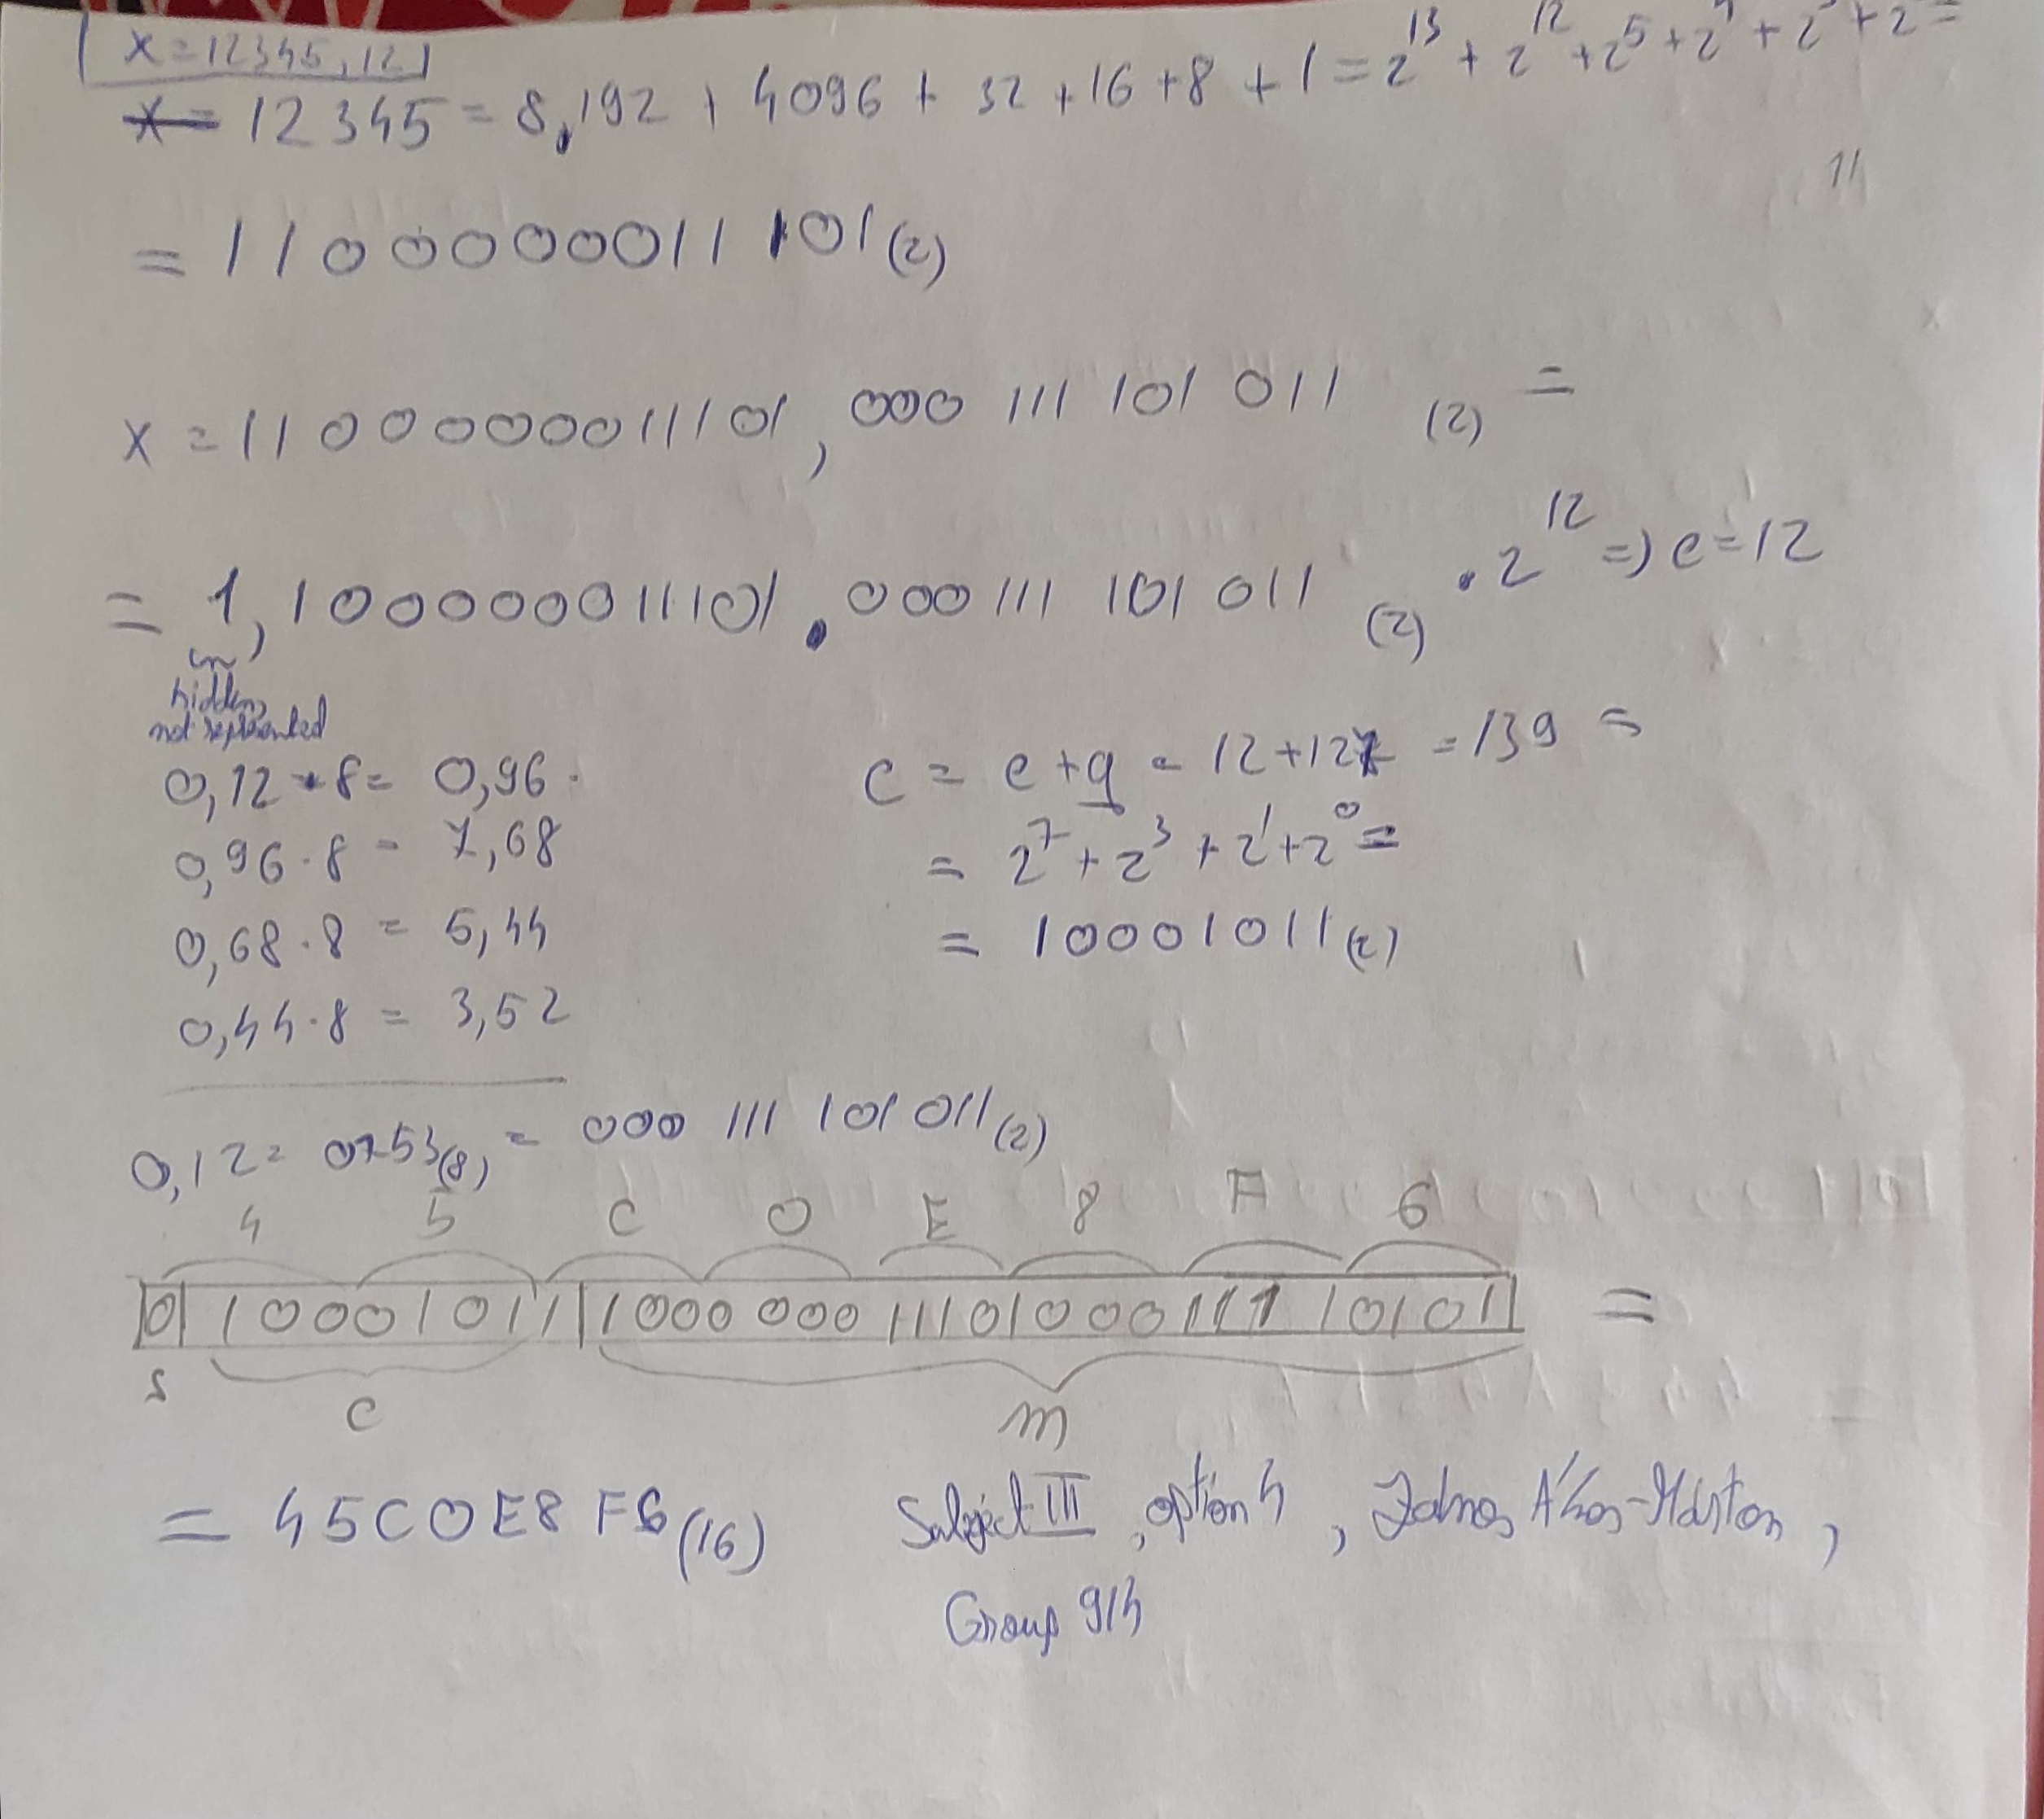 x=12345,12
x= 12345 = 8,192 + 4096 + 32 +16 +8 +1 = 2^13 + 2^12 + 2^5 + 2^4 + 2 + 2 =
11
= 1100000011101(2)
x = 1100000011101,000 111 101 011 (2) =
= 1,100000011101.000 111 101 011 (2) . 2^12 => e=12
hidden,
not represented
0,12 * 8 = 0,96
0,96 . 8 = 7,68
0,68 . 8 = 5,44
0,44 . 8 = 3,52
c = e+q = 12+127 = 139 =
= 2^7 + 2^3 + 2^1 + 2^0 =
= 10001011(2)
0,12 = 0753(8) = 000 111 101 011(2)
4 5 C 0 E 8 F 6
0 10001011 1000 000 11101000111 101011 =
s c m
= 45C0E8 F6 (16)
Subject III, option 4, Ákos-Márton,
Group 914